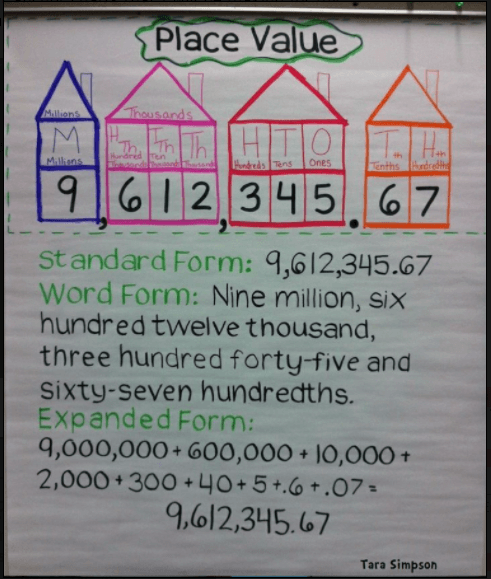 Place Value
Millions Thousands
M HTh TTh Th H T O Tth Hth
Millions Hundred Thousands Ten Thousands Thousands Hundreds Tens Ones Tenths Hundredths
9,612,345.67
Standard Form: 9,612,345.67
Word Form: Nine million, six
hundred twelve thousand,
three hundred forty-five and
sixty-seven hundredths.
Expanded Form:
9,000,000+600,000+10,000+
2,000+300+40+5+.6+.07=
9,612,345.67
Tara Simpson